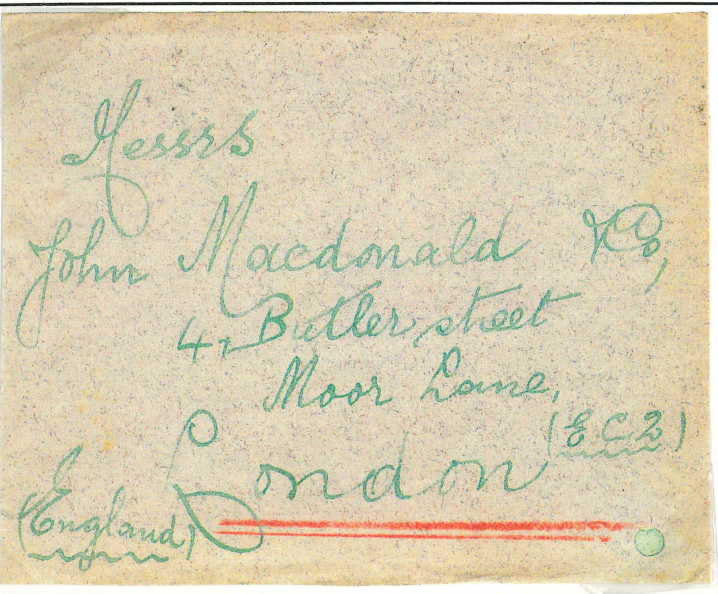 Messrs
John Macdonald & Co,
4, Butler street
Moor Lane,
(E.C.2)
London
(England)